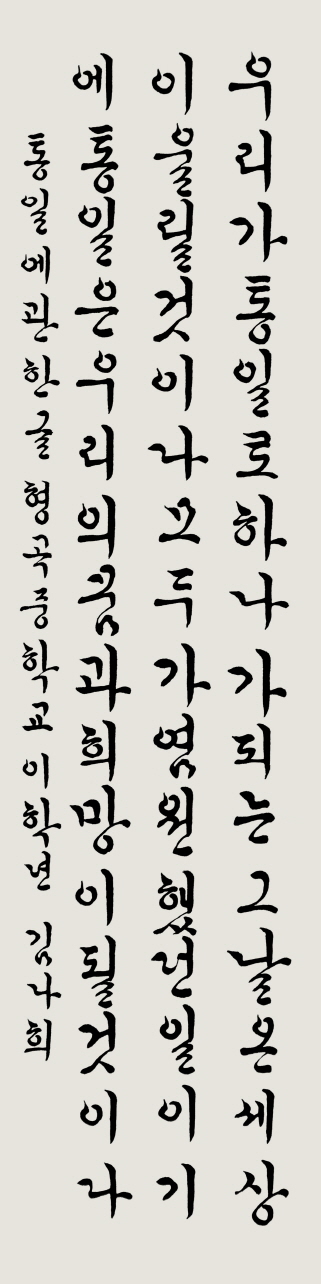 우리가통일로하나가되는그날온세상
이울릴것이나모두가염원했던일이기
에통일은우리의꿈과희망이될것이나
통일에관한글 형곡중학교이학년 김나희